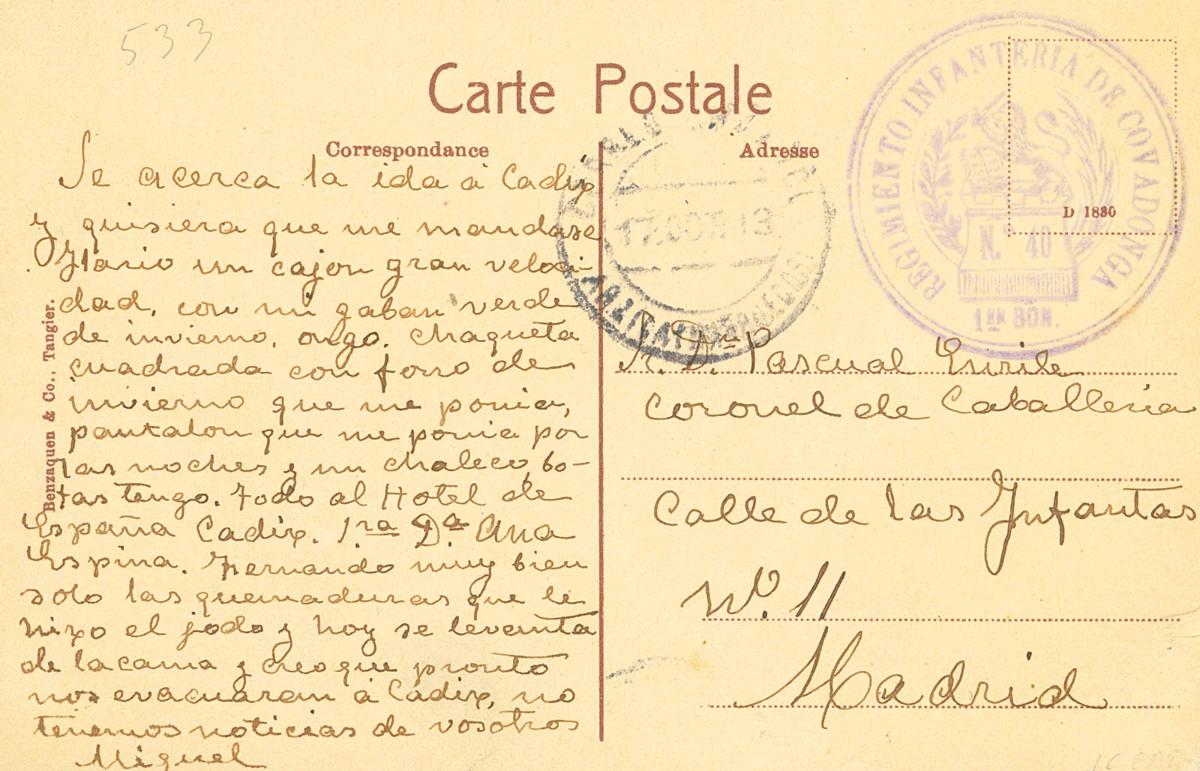 533
Carte Postale
Correspondance
Adresse
Se acerca la ida á Cadiz
y quisiera que me mandase
Hario un cajon gran veloci-
dad, con mi gaban verde
de invierno, chaqueta
cuadrada con forro de
invierno que me ponia,
pantalon que me ponia por
las noches y un chaleco, bo-
tas tengo. Todo al Hotel de
España Cadiz. Sra Dª Ana
Espina. Fernando muy bien
solo las quemaduras que le
hizo el jodo y hoy se levanta
de la cama y creo que pronto
nos evacuaran á Cádiz, no
tenemos noticias de vosotros
Miguel
Benzaquen & Co., Tangier.
REGIMIENTO INFANTERIA DE COVADONGA
N.º 40
1ER BÓN.
D 1830
17.OCT 13
Sr. D. Pascual Enrile
Coronel de Caballeria
Calle de las Infantas
Nº. 11
Madrid